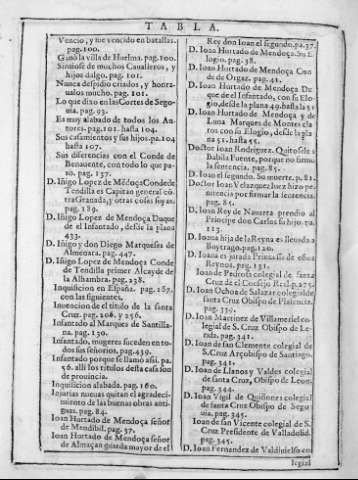 TABLA.
Vencio, y fue vencido en batallas.
pag. 100.
Ganò la villa de Huelma. pag. 100.
Siruiose de muchos Caualleros, y
hijos dalgo. pag. 101.
Nunca despidio criados, y honra-
ualos mucho. pag. 101.
Lo que dixo en las Cortes de Sego-
uia. pag. 93.
Es muy alabado de todos los Au-
tores. pag. 101. hasta 104.
Sus casamientos y sus hijos. pa. 104
hasta 107.
Sus diferencias con el Conde de
Benauente, con todo lo que pa-
so. pag. 137.
D. Iñigo Lopez de Mẽdoça Conde de
Tendilla es Capitan general cõ-
tra Granada, y otras cosas suyas.
pag. 189.
D. Iñigo Lopez de Mendoça Duque
de el Infantado, desde la plana
433.
D. Iñigo y don Diego Marqueses de
Almenara. pag. 447.
D. Iñigo Lopez de Mendoça Conde
de Tendilla primer Alcayde de
la Alhambra. pag. 238.
Inquisicion en España. pag. 267.
con las siguientes.
Inuencion de el titulo de la santa
Cruz. pag. 206. y 256.
Infantado al Marques de Santilla-
na. pag. 130.
Infantado, mugeres suceden en to-
dos sus señorios. pag. 439.
Infantado porque se llamò assi. pa.
56. alli los titulos desta casa son
de prouincia.
Inquisicion alabada. pag. 160.
Injurias nueuas quitan el agradeci-
miento de las buenas obras anti-
guas. pag. 84.
Ioan Hurtado de Mendoça señor
de Mendibil. pag. 37.
Ioan Hurtado de Mendoça señor
de Almaçan guarda mayor de el
Rey don Ioan el segundo. pa. 37.
D. Ioan Hurtado de Mendoça. Su E-
logio. pag. 38.
D. Ioan Hurtado de Mendoça Con
de de Orgaz. pag. 41.
D. Ioan Hurtado de Mendoça Du
que de el Infantado, con su Elo-
gio, desde la plana 49. hasta la 51
D. Ioan Hurtado de Mendoça y de
Luna Marques de Montes cla
ros con su Elogio, desde la pla
na 51. hasta 55.
Doctor Ioan Rodriguez. Quitosele a
Babila Fuente, porque no firmò
la sentencia. pag. 85.
D. Ioan el segundo. Su muerte. p. 81.
Doctor Ioan Velazquez luez hizo pe-
nitencia por firmar la sentencia.
pag. 85.
D. Ioan Rey de Nauarra prendio al
Principe don Carlos su hijo. pa.
113.
D. Ioana hija de la Reyna es lleuada a
Buytrago. pag. 120.
D. Ioana es jurada Princesa de estos
Reynos. pag. 131.
Ioan de Pedrosa colegial de santa
Cruz de el Consejo Real. p. 275.
D. Ioan Ochoa de Salazar colegial de
santa Cruz Obispo de Plasencia.
pag. 339.
D. Ioan Martinez de Villameriel co-
legial de S. Cruz Obispo de Le-
rida. pag. 341.
D. Ioan de san Clemente colegial de
S. Cruz Arçobispo de Santiago.
pag. 341.
D. Ioan de Llanos y Valdes colegial
de santa Cruz, Obispo de Leon.
pag. 344.
D. Ioan Vigil de Quiñones colegial
de santa Cruz Obispo de Sego-
uia. pag. 345.
Ioan de san Vicente colegial de S.
Cruz Presidente de Valladolid.
pag. 345.
D. Ioan Fernandez de Valdiuielso co-
legial